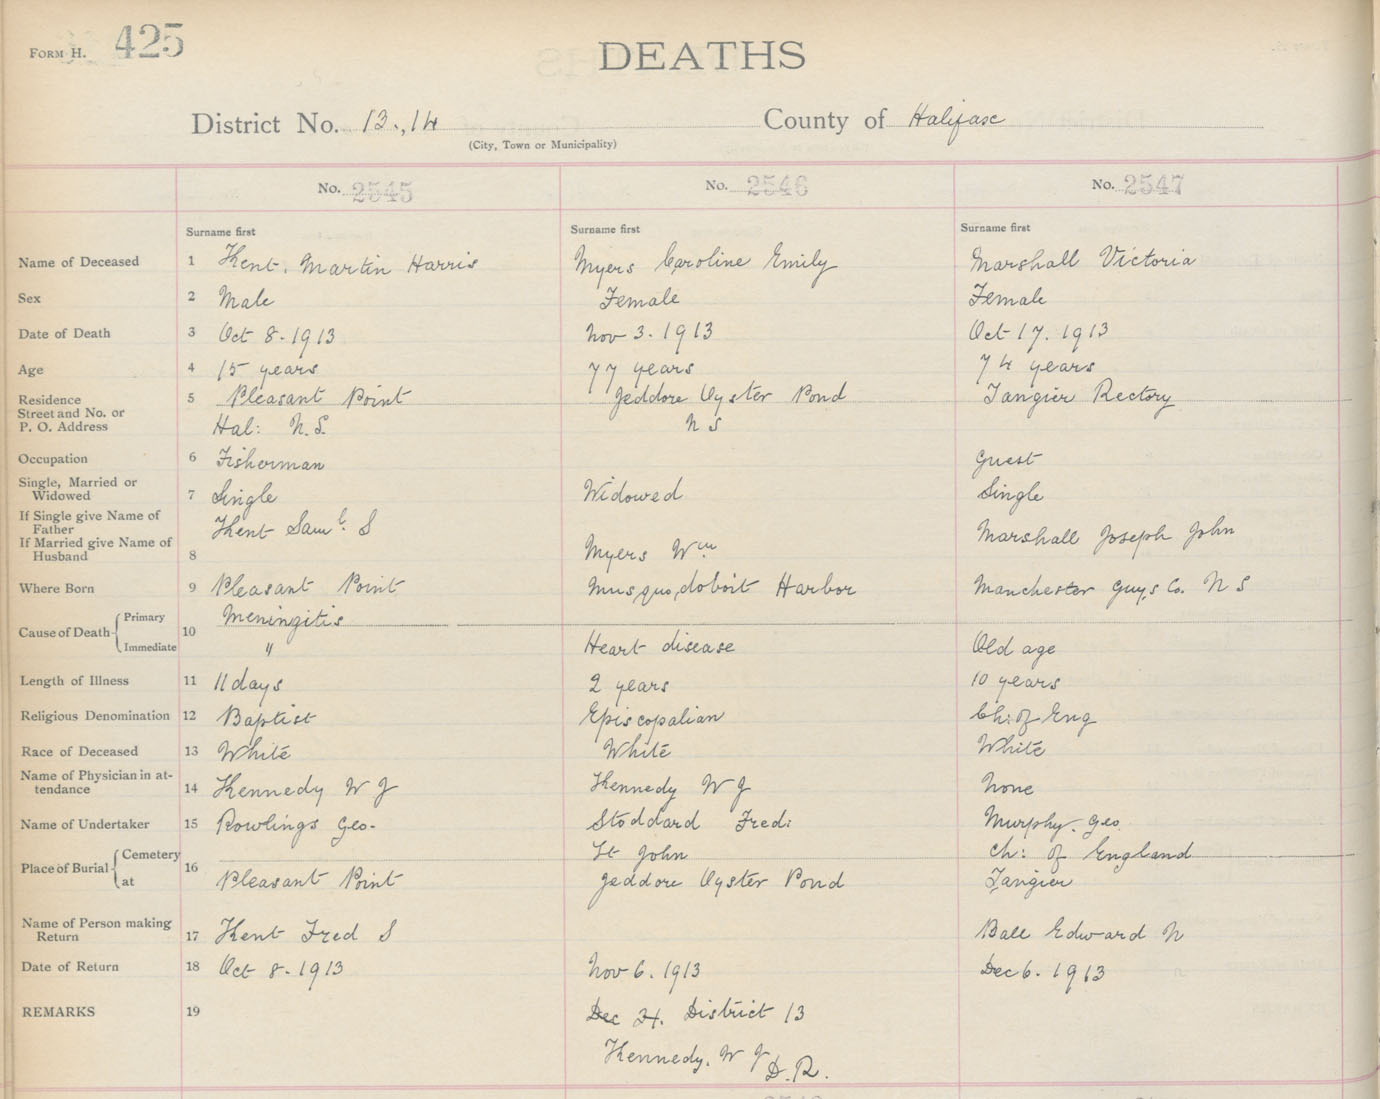 FORM H. 425
DEATHS
District No. 13.,14 County of Halifax
(City, Town or Municipality)
No. 2545 No. 2546 No. 2547
Surname first Surname first Surname first
Name of Deceased 1 Kent. Martin Harris Myers Caroline Emily Marshall Victoria
Sex 2 Male Female Female
Date of Death 3 Oct 8-1913 Nov 3-1913 Oct 17. 1913
Age 4 15 years 77 years 74 years
Residence 5 Pleasant Point Jeddore Oyster Pond Tangier Rectory
Street and No. or
P. O. Address Hal: N.S. N S
Occupation 6 Fisherman Guest
Single, Married or
Widowed 7 Single Widowed Single
If Single give Name of
Father Kent Saml. S Marshall Joseph John
If Married give Name of
Husband 8 Myers Wm
Where Born 9 Pleasant Point Musquodoboit Harbor Manchester Guys Co. N S
Cause of Death Primary 10 Meningitis
Immediate " Heart disease Old age
Length of Illness 11 11 days 2 years 10 years
Religious Denomination 12 Baptist Episcopalian Ch: of Eng
Race of Deceased 13 White White White
Name of Physician in at-
tendance 14 Kennedy W J Kennedy W J None
Name of Undertaker 15 Rowlings Geo- Stoddard Fred: Murphy. Geo.
Place of Burial Cemetery 16 St John Ch: of England
at Pleasant Point Jeddore Oyster Pond Tangier
Name of Person making
Return 17 Kent Fred S Ball Edward N
Date of Return 18 Oct 8-1913 Nov 6. 1913 Dec 6. 1913
REMARKS 19 Dec 24. District 13
Kennedy. W J
D.R.